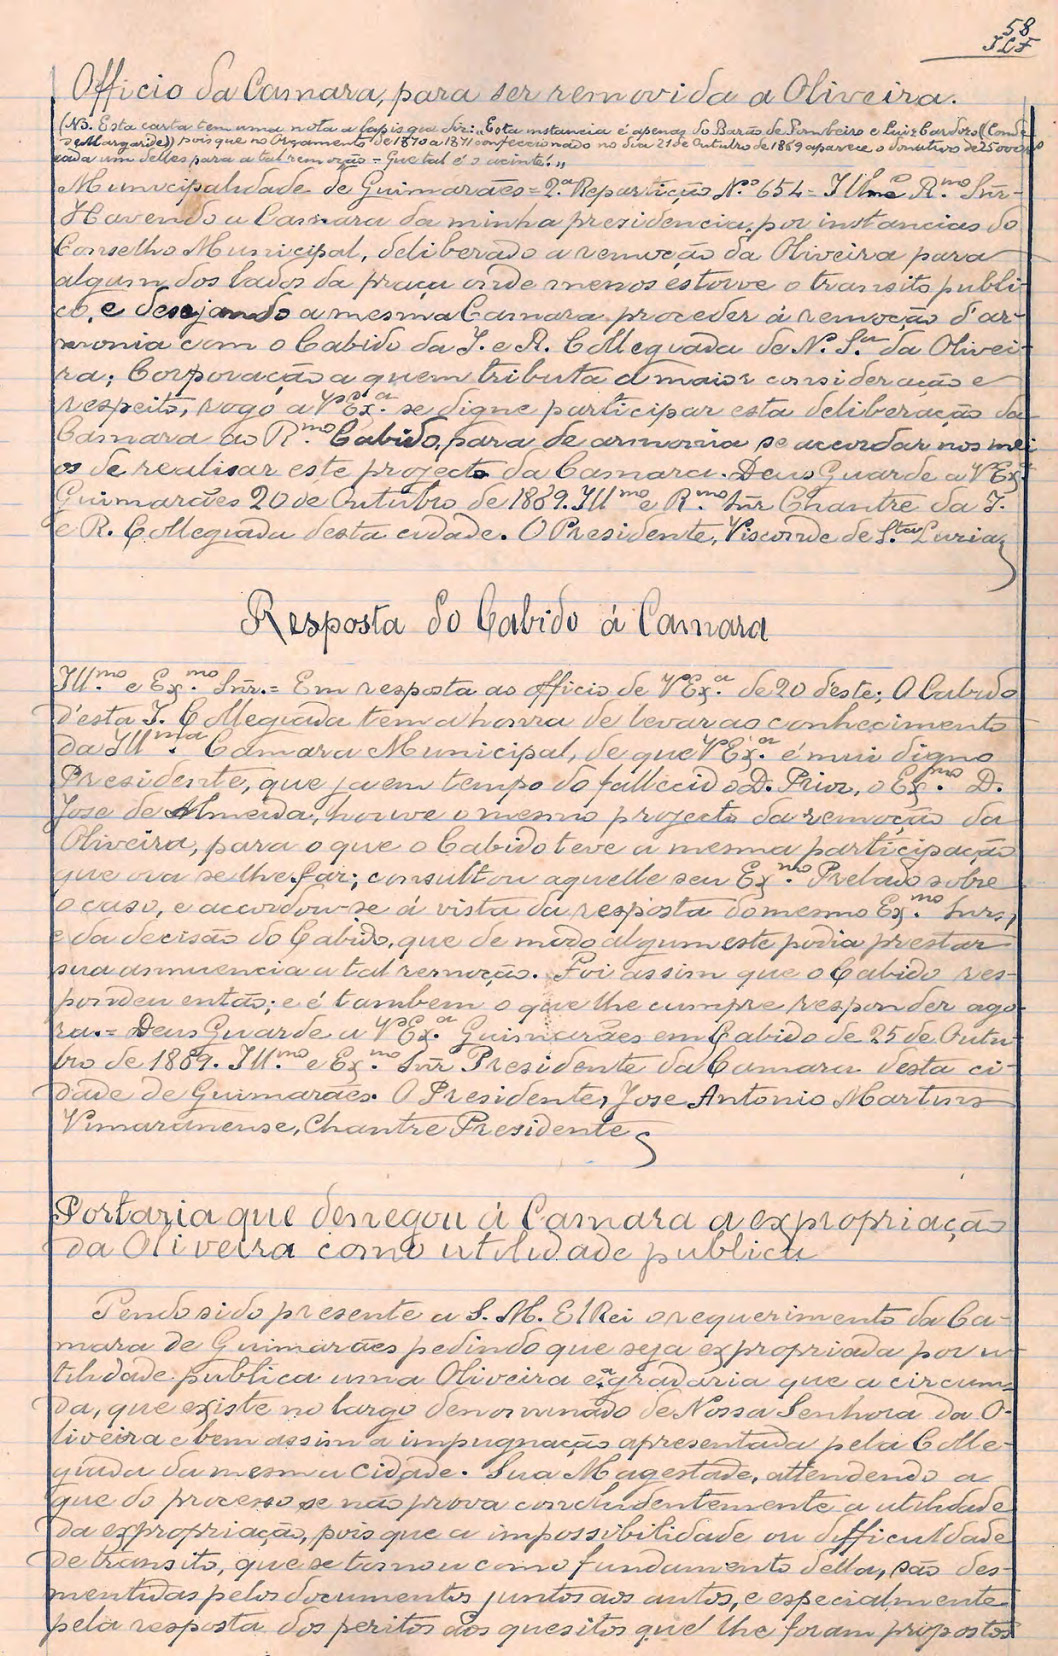 58
JLF
Officio da Camara, para ser removida a Oliveira.
(NB. Esta carta tem uma nota a lapis que diz: „Esta instancia é apenas do Barão de Pombeiro e Luiz Cardozo (Conde
de Margaride), pois que no Orçamento de 1870 a 1871 confeccionado no dia 21 de Outubro de 1869 aparece o donativo de
cada um delles para a tal remoção = Que tal é o acinte!„
Municipalidade de Guimarães = 2.ª Repartição N.º 654 = Illmº R.mo Snr. =
Havendo a Camara da minha presidencia, por instancias do
Conselho Municipal, deliberado a remoção da Oliveira para
algum dos lados da praça onde menos estorve o transito publi-
co, e desejando a mesma Camara proceder á remoção d'ar-
monia com o Cabido da I. e R. Collegiada de N. S.ra da Olivei-
ra; Corporação a quem tributa a maior consideração e
respeito, rogo a V Ex.ª se digne participar esta deliberação da
Camara ao R.mo Cabido, para de armonia se accordar nos mei
os de realisar este projecto da Camara. Deus Guarde a V Ex.ª
Guimarães 20 de Outubro de 1869. Illmo e R.mo Snr Chantre da I.
e R. Collegiada desta cidade. O Presidente, Visconde de S.ta Luzia
Resposta do Cabido á Camara
Ill.mo e Ex.mo Snr. = Em resposta ao officio de V Ex.ª de 20 d'este; O Cabido
d'esta I. Collegiada tem a honra de levar ao conhecimento
da Ill.ma Camara Municipal, de que V Ex.ª é mui digno
Presidente, que ja em tempo do fallecido D. Prior, o Ex.mo D.
Jose de Almeida, houve o mesmo projecto da remoção da
Oliveira, para o que o Cabido teve a mesma participação
que ora se lhe faz; consultou aquelle seu Ex.mo Prelado sobre
o caso, e accordou-se á vista da resposta do mesmo Ex.mo Snr.,
e da decisão do Cabido, que de modo algum este podia prestar
sua annuencia a tal remoção. Foi assim que o Cabido res-
pondeu então; e é tambem o que lhe cumpre responder ago-
ra. = Deus Guarde a V Ex.ª Guimarães em Cabido de 25 de Outu-
bro de 1869. Ill.mo e Ex.mo Snr Presidente da Camara desta ci-
dade de Guimarães. O Presidente, Jose Antonio Martins
Vimaranense, Chantre Presidente
Portaria que denegou á Camara a expropriação
da Oliveira como utilidade publica
Tendo sido presente a S. M. El Rei o requerimento da Ca-
mara de Guimarães pedindo que seja expropriada por u-
tilidade publica uma Oliveira e a gradaria que a circum-
da, que existe no largo denominado de Nossa Senhora da O-
liveira e bem assim a impugnação apresentada pela Colle-
giada da mesma Cidade. Sua Magestade, attendendo a
que do processo se não prova concludentemente a utilidade
da expropriação, pois que a impossibilidade ou difficuldade
de transito, que se tomou como fundamento della, são des-
mentidas pelos documentos juntos aos autos, e especialmente
pela resposta dos peritos aos quesitos que lhe foram propostos